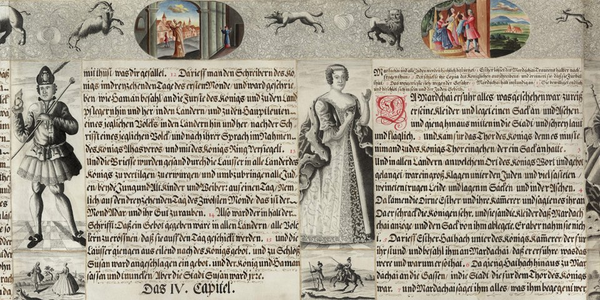 mit thust, was dir gefallet. Da rieff man den Schreibern des Kö
nigs im drenzehenden Tage des ersten Monde, und ward geschrie
ben, wie Haman befahl, an die Fürste des Königs und zu den Land
pflegern hin und her in den Landern, und zu den Hauptleuten
eines jeglichen Volcks in den Landern hin und her, nach der Sch
rifft eines jeglichen Volcks, und nach ihrer Sprach, im Nahmen
des Königs Ahasveros, und mit des Königs Ring Versigelt.
Und die Brieffe wurden gesand durch die Lauffer in alle Lander des
Königs, zu vertilgen, zu erwürgen, und umbzubringen alle Jud
en, beyde Jung und Alt, Kinder und Weiber, auf einen Tag, Nem
lich auf den drenzehenden Tag des Zwölften Monde, das ist der
Mond Adar, und ihr Gut zu rauben. Also ward der inhalt der
Schrifft: Daß ein Gebot gegeben ware in allen Landern, alle Völ
kern zueröffnen, daß sie auff den Tag geschickt weren. und die
Lauffer giengen aus eilend nach des Königs gebot, und zu Schloß
Susan ward angeschlagen ein gebot, und der König und Haman
sassen und truncken, Aber die Stadt Susan ward irre.
Das IV. Capitel.
DA Mardachai erfuhr alles was geschehen war, zureiß
er seine Kleider, und legte einen Sack an, und Aschen,
und gieng hinaus mitten in die Stad, und schrey laut
und klaglich. und kam für das Thor des Königs, denn es muste
niemand zu des Königs Thor eingehen, der ein Sack an hatte.
Und in allen Landern, an welchen Ort des Königs Wort und gebot
gelanget, war ein groß Klagen unter den Juden, und viel fasteten
weineten trugen Leide, und lagen in Sacken und in der Aschen.
Da kamen die Dirne Esther und ihre Kamerer und sagten es ihr an
Da erschrack die Königin sehr, und sie sandte Kleider daß Mardach
hai anzoge und den Sack von ihm ablegete, Er aber nahm sie nich
t. Da rieff Esther Hathach unter des Königs Kamerer, der für
ihr stund, und befahl ihm an Mardachai, daß er erführe was das
were und warum er so that. Da gieng Hathach hinaus zu Mar
dachai an die Gassen in die Stadt, die für dem Thor des Königs
war. Und Mardachai sagte ihm alles was ihm begegnet wer